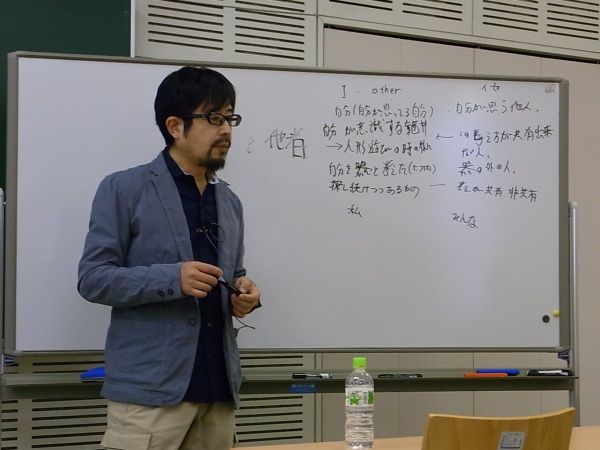 I. other 他
自分(自分が思ってる自分) 自分が思う他人。
他者 自分が意識する範囲 ← この考え方が共有出来
→人形遊びの時の ない人。
自分を器と考えた 器の外の人。
探し続けつつあるもの — 共有 非共有
私 みんな